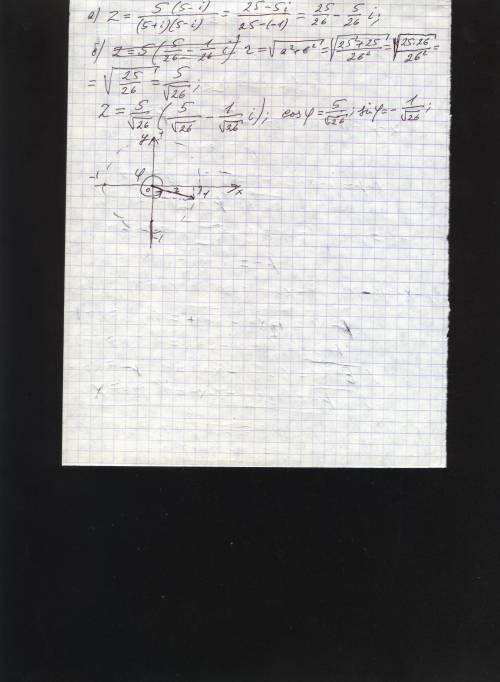 а) z = 5(5-i)/((5+i)(5-i)) = (25-5i)/(25-(-1)) = 25/26 - 5/26 i;
б) z = 5(5/26 - 1/26 i) r = √(a²+b²) = √((25²+25)/26²) = √(25·26/26²) =
= √(25/26) = 5/√26;
z = 5/√26 (5/√26 - 1/√26 i); cosφ = 5/√26; sinφ = -1/√26;
y
-1 φ 0 1 x
-1